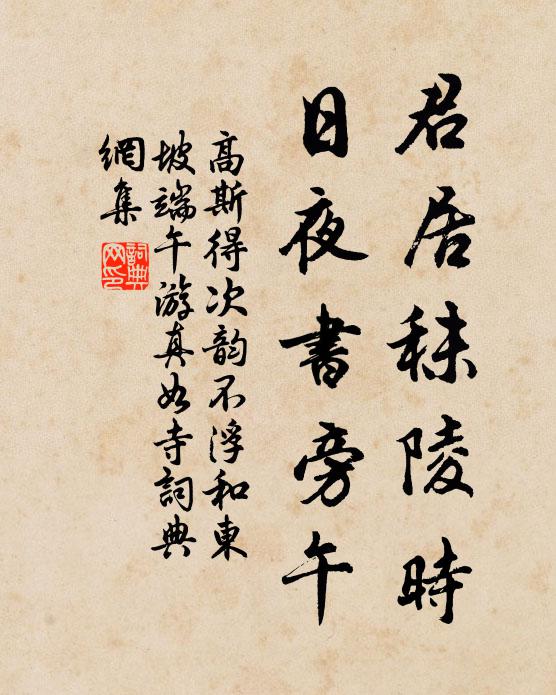 君居秣陵時
日夜書旁午
高斯得次韵不浮和東
坡端午游真如寺詞典
網集
詞典網印